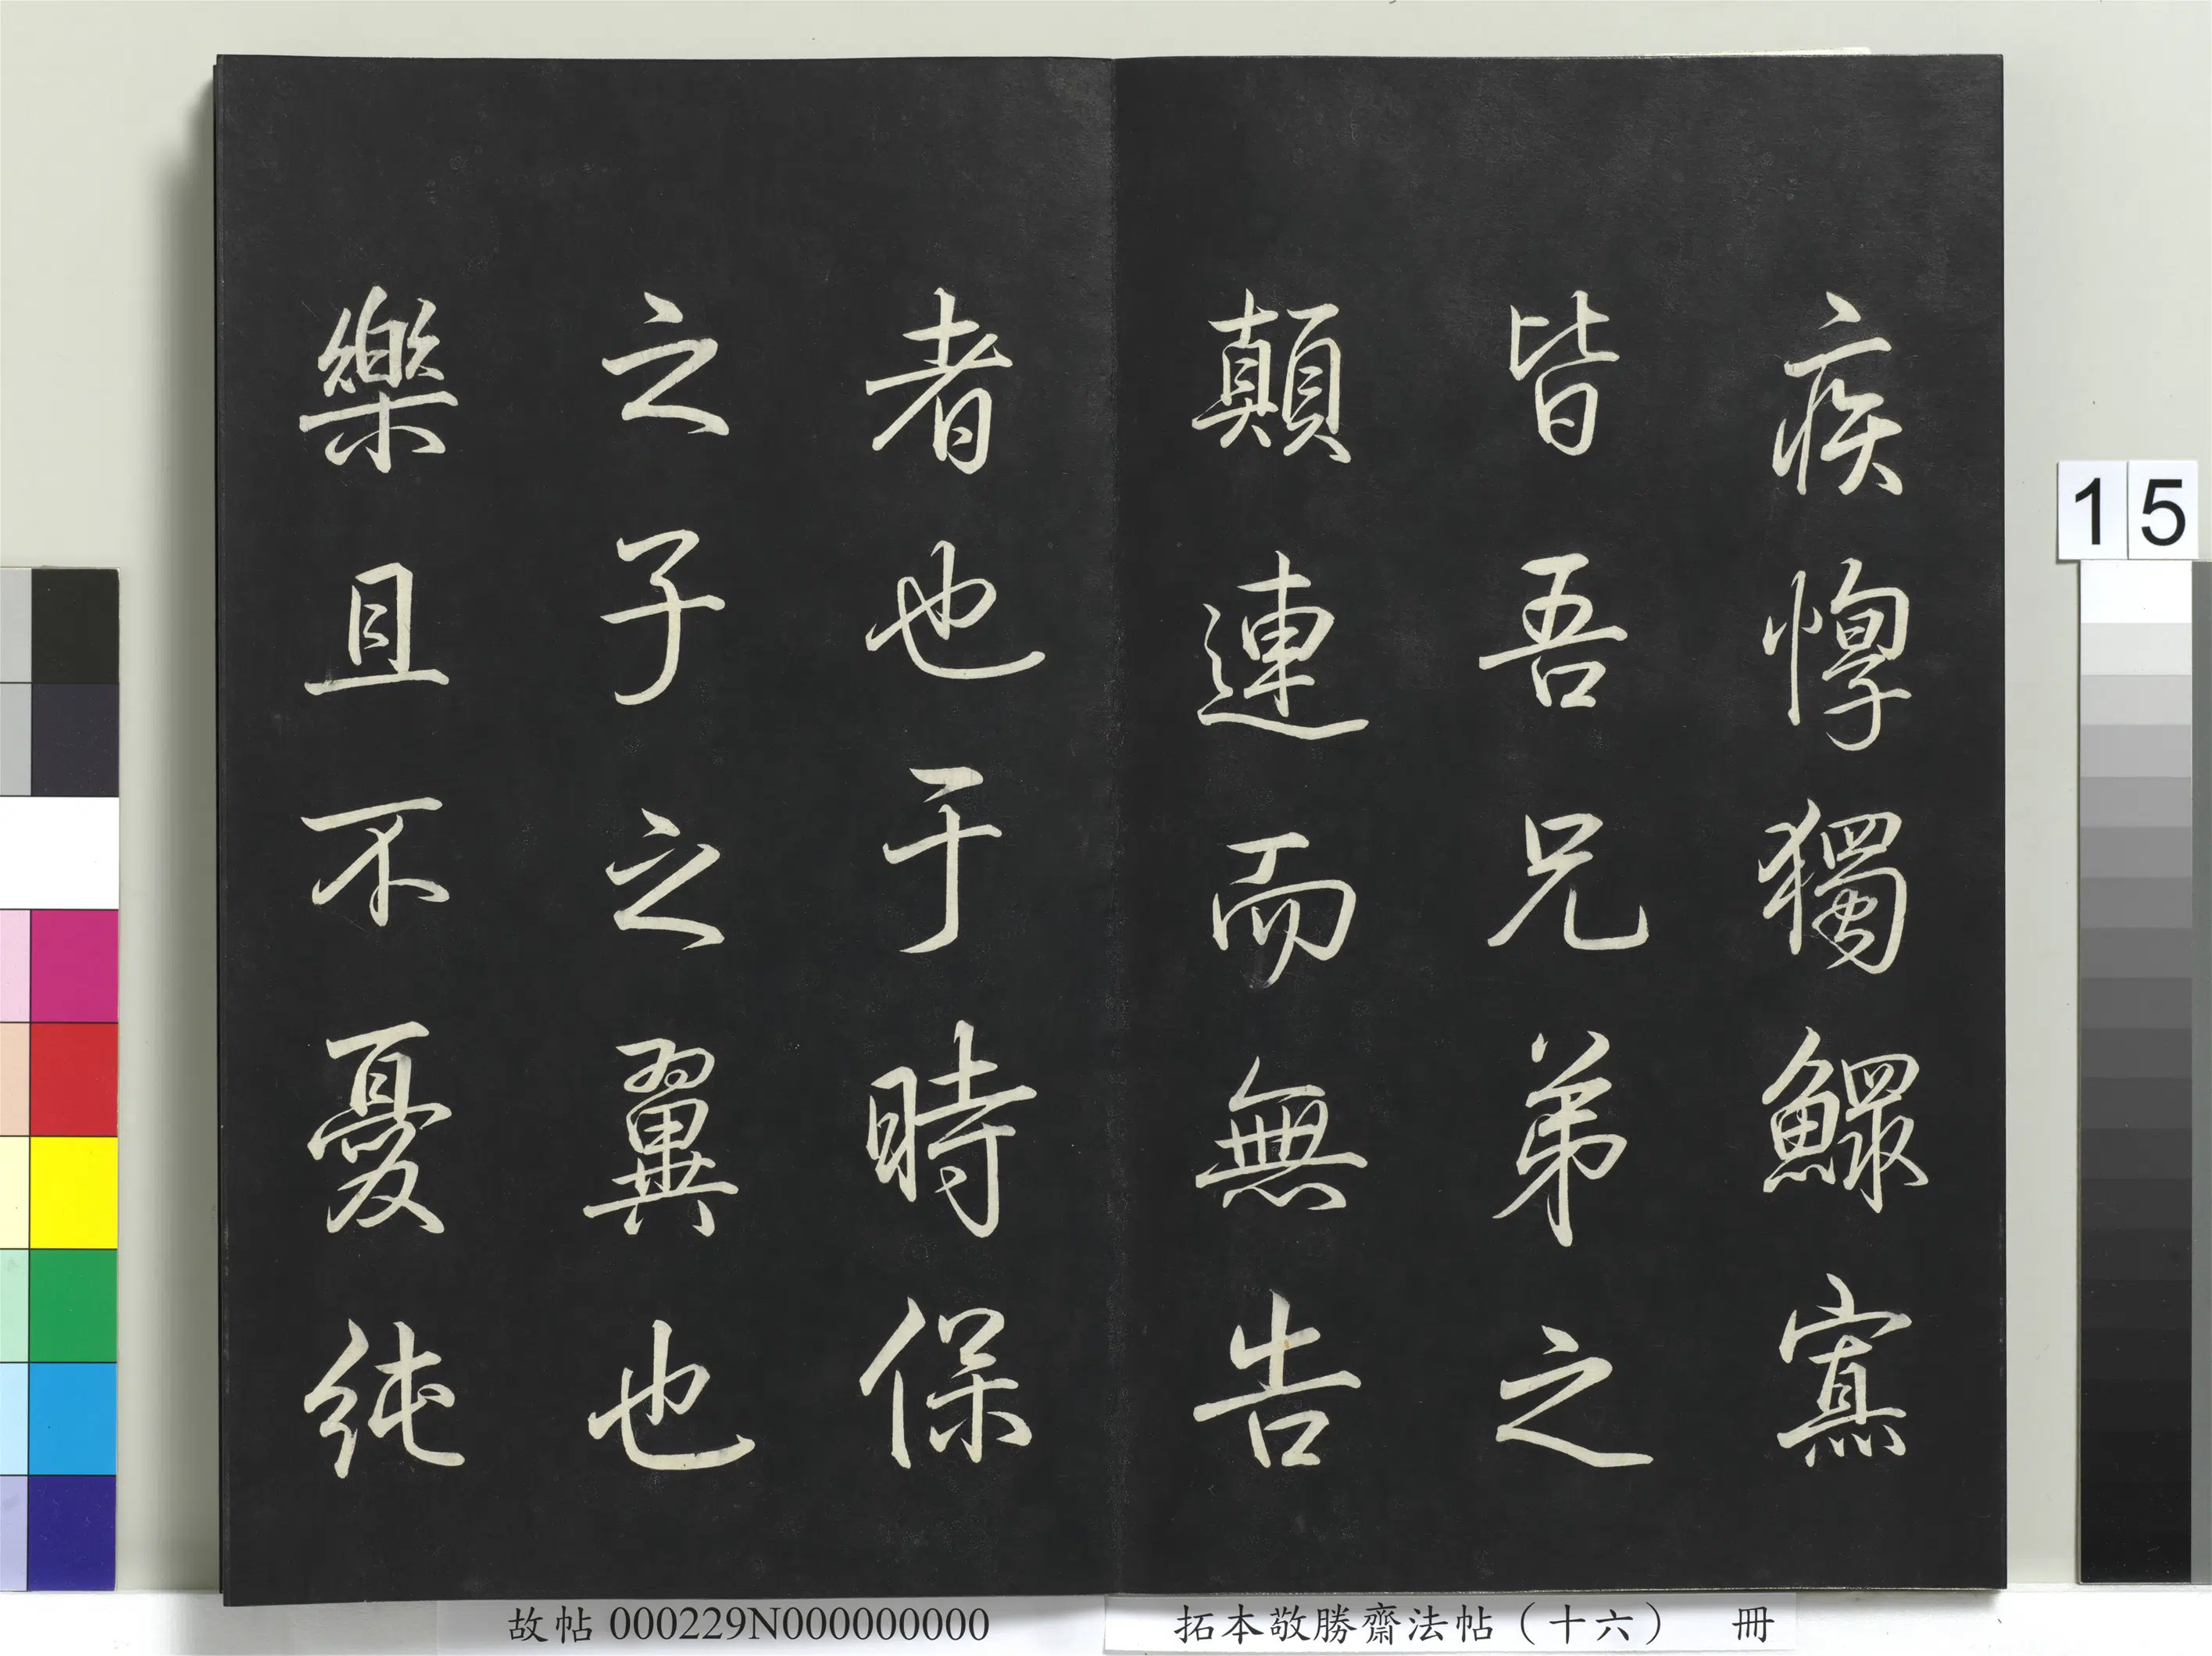 疾惸獨鰥寡
皆吾兄弟之
顛連而無告
者也于時保
之子之翼也
樂且不憂純
15
故帖 000229N000000000
拓本敬勝齋法帖（十六） 冊